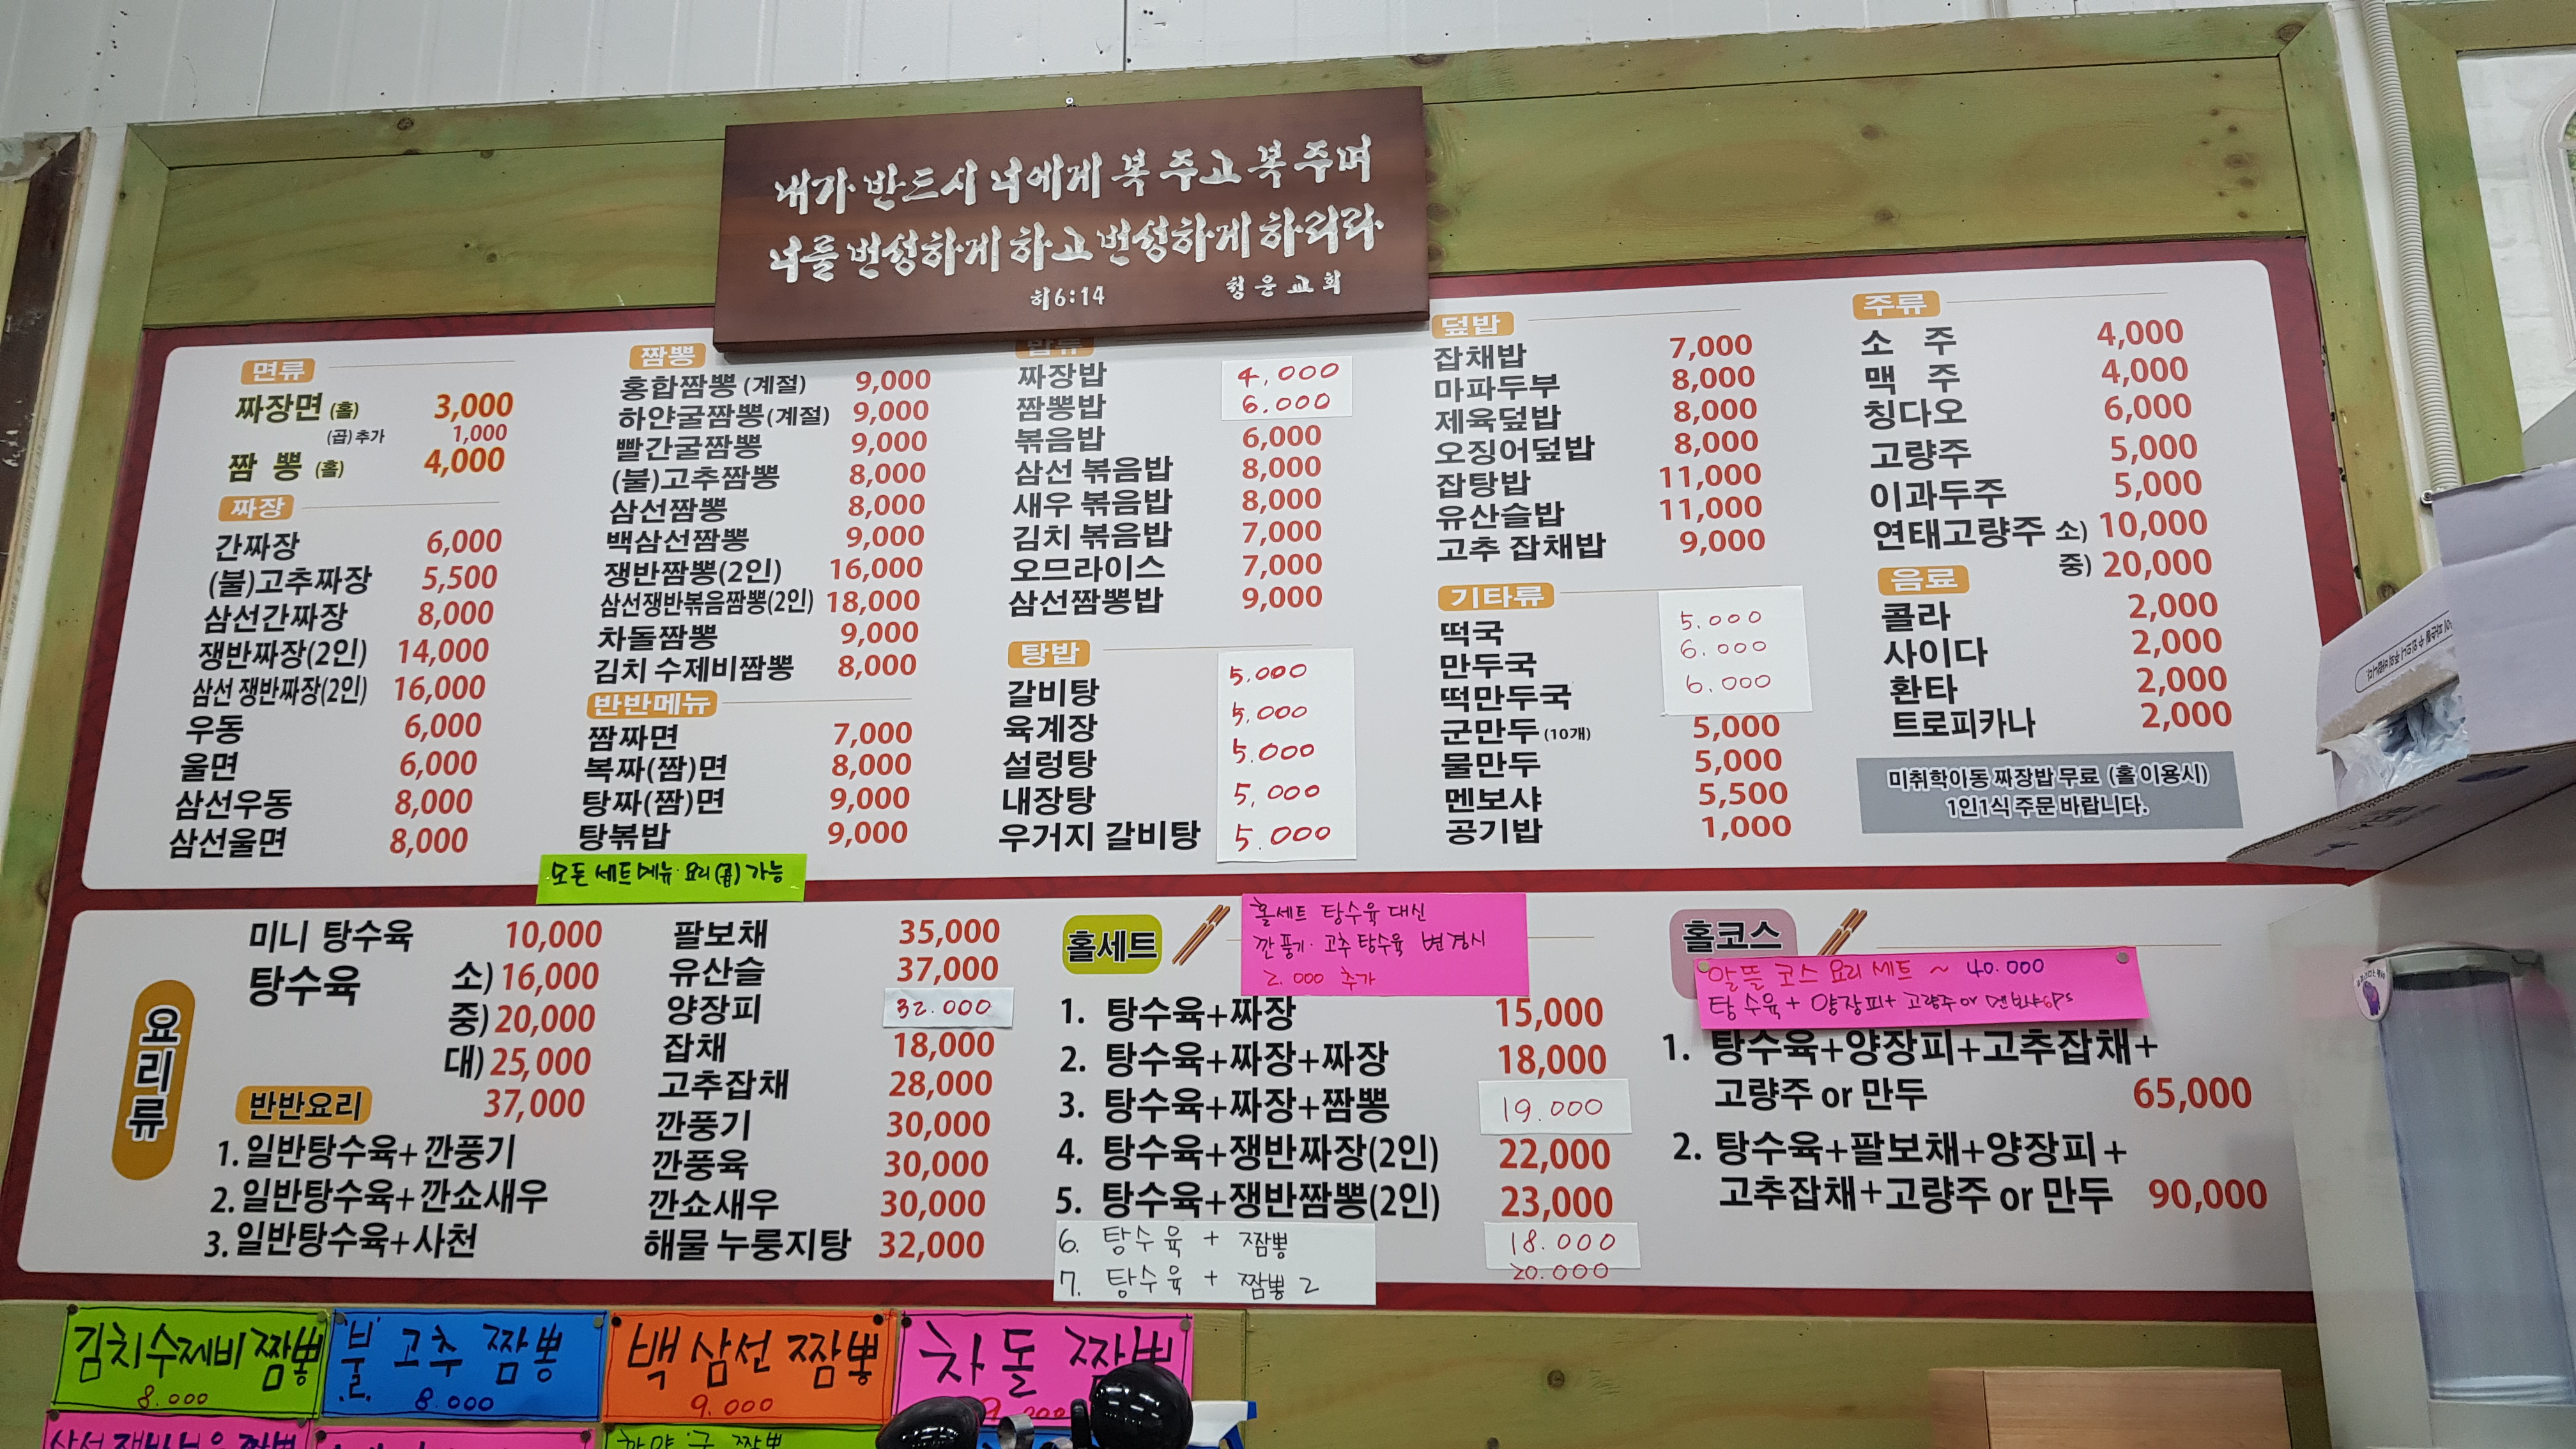 내가 반드시 너에게 복 주고 복 주며
너를 번성하게 하고 번성하게 하리라
히6:14 형운교회
면류
짜장면 (홀) 3,000
(곱) 추가 1,000
짬 뽕 (홀) 4,000
짜장
간짜장 6,000
(불)고추짜장 5,500
삼선간짜장 8,000
쟁반짜장(2인) 14,000
삼선 쟁반짜장(2인) 16,000
우동 6,000
울면 6,000
삼선우동 8,000
삼선울면 8,000
짬뽕
홍합짬뽕 (계절) 9,000
하얀굴짬뽕(계절) 9,000
빨간굴짬뽕 9,000
(불)고추짬뽕 8,000
삼선짬뽕 8,000
백삼선짬뽕 9,000
쟁반짬뽕(2인) 16,000
삼선쟁반볶음짬뽕(2인) 18,000
차돌짬뽕 9,000
김치 수제비짬뽕 8,000
반반메뉴
짬짜면 7,000
복짜(짬)면 8,000
탕짜(짬)면 9,000
탕볶밥 9,000
모든 세트메뉴·요리(곱) 가능
밥류
짜장밥 4,000
짬뽕밥 6.000
볶음밥 6,000
삼선 볶음밥 8,000
새우 볶음밥 8,000
김치 볶음밥 7,000
오므라이스 7,000
삼선짬뽕밥 9,000
탕밥
갈비탕 5.000
육계장 5,000
설렁탕 5.000
내장탕 5,000
우거지 갈비탕 5.000
덮밥
잡채밥 7,000
마파두부 8,000
제육덮밥 8,000
오징어덮밥 8,000
잡탕밥 11,000
유산슬밥 11,000
고추 잡채밥 9,000
기타류
떡국 5.000
만두국 6.000
떡만두국 6.000
군만두 (10개) 5,000
물만두 5,000
멘보샤 5,500
공기밥 1,000
주류
소 주 4,000
맥 주 4,000
칭다오 6,000
고량주 5,000
이과두주 5,000
연태고량주 소) 10,000
중) 20,000
음료
콜라 2,000
사이다 2,000
환타 2,000
트로피카나 2,000
미취학아동 짜장밥 무료 (홀 이용시)
1인1식 주문 바랍니다.
요리류
미니 탕수육 10,000
탕수육 소) 16,000
중) 20,000
대) 25,000
반반요리 37,000
1. 일반탕수육+깐풍기
2. 일반탕수육+깐쇼새우
3. 일반탕수육+사천
팔보채 35,000
유산슬 37,000
양장피 32.000
잡채 18,000
고추잡채 28,000
깐풍기 30,000
깐풍육 30,000
깐쇼새우 30,000
해물 누룽지탕 32,000
홀세트
홀세트 탕수육 대신
깐풍기·고추탕수육 변경시
2.000 추가
1. 탕수육+짜장 15,000
2. 탕수육+짜장+짜장 18,000
3. 탕수육+짜장+짬뽕 19.000
4. 탕수육+쟁반짜장(2인) 22,000
5. 탕수육+쟁반짬뽕(2인) 23,000
6. 탕수육 + 짬뽕 18.000
7. 탕수육 + 짬뽕 2 20.000
홀코스
알뜰 코스 요리 세트 ~ 40.000
탕수육 + 양장피 + 고량주 or 멘보샤6Ps
1. 탕수육+양장피+고추잡채+
고량주 or 만두 65,000
2. 탕수육+팔보채+양장피+
고추잡채+고량주 or 만두 90,000
김치수제비 짬뽕
8.000
불 고추 짬뽕
8.000
백 삼선 짬뽕
9.000
차돌 짬뽕
9.000